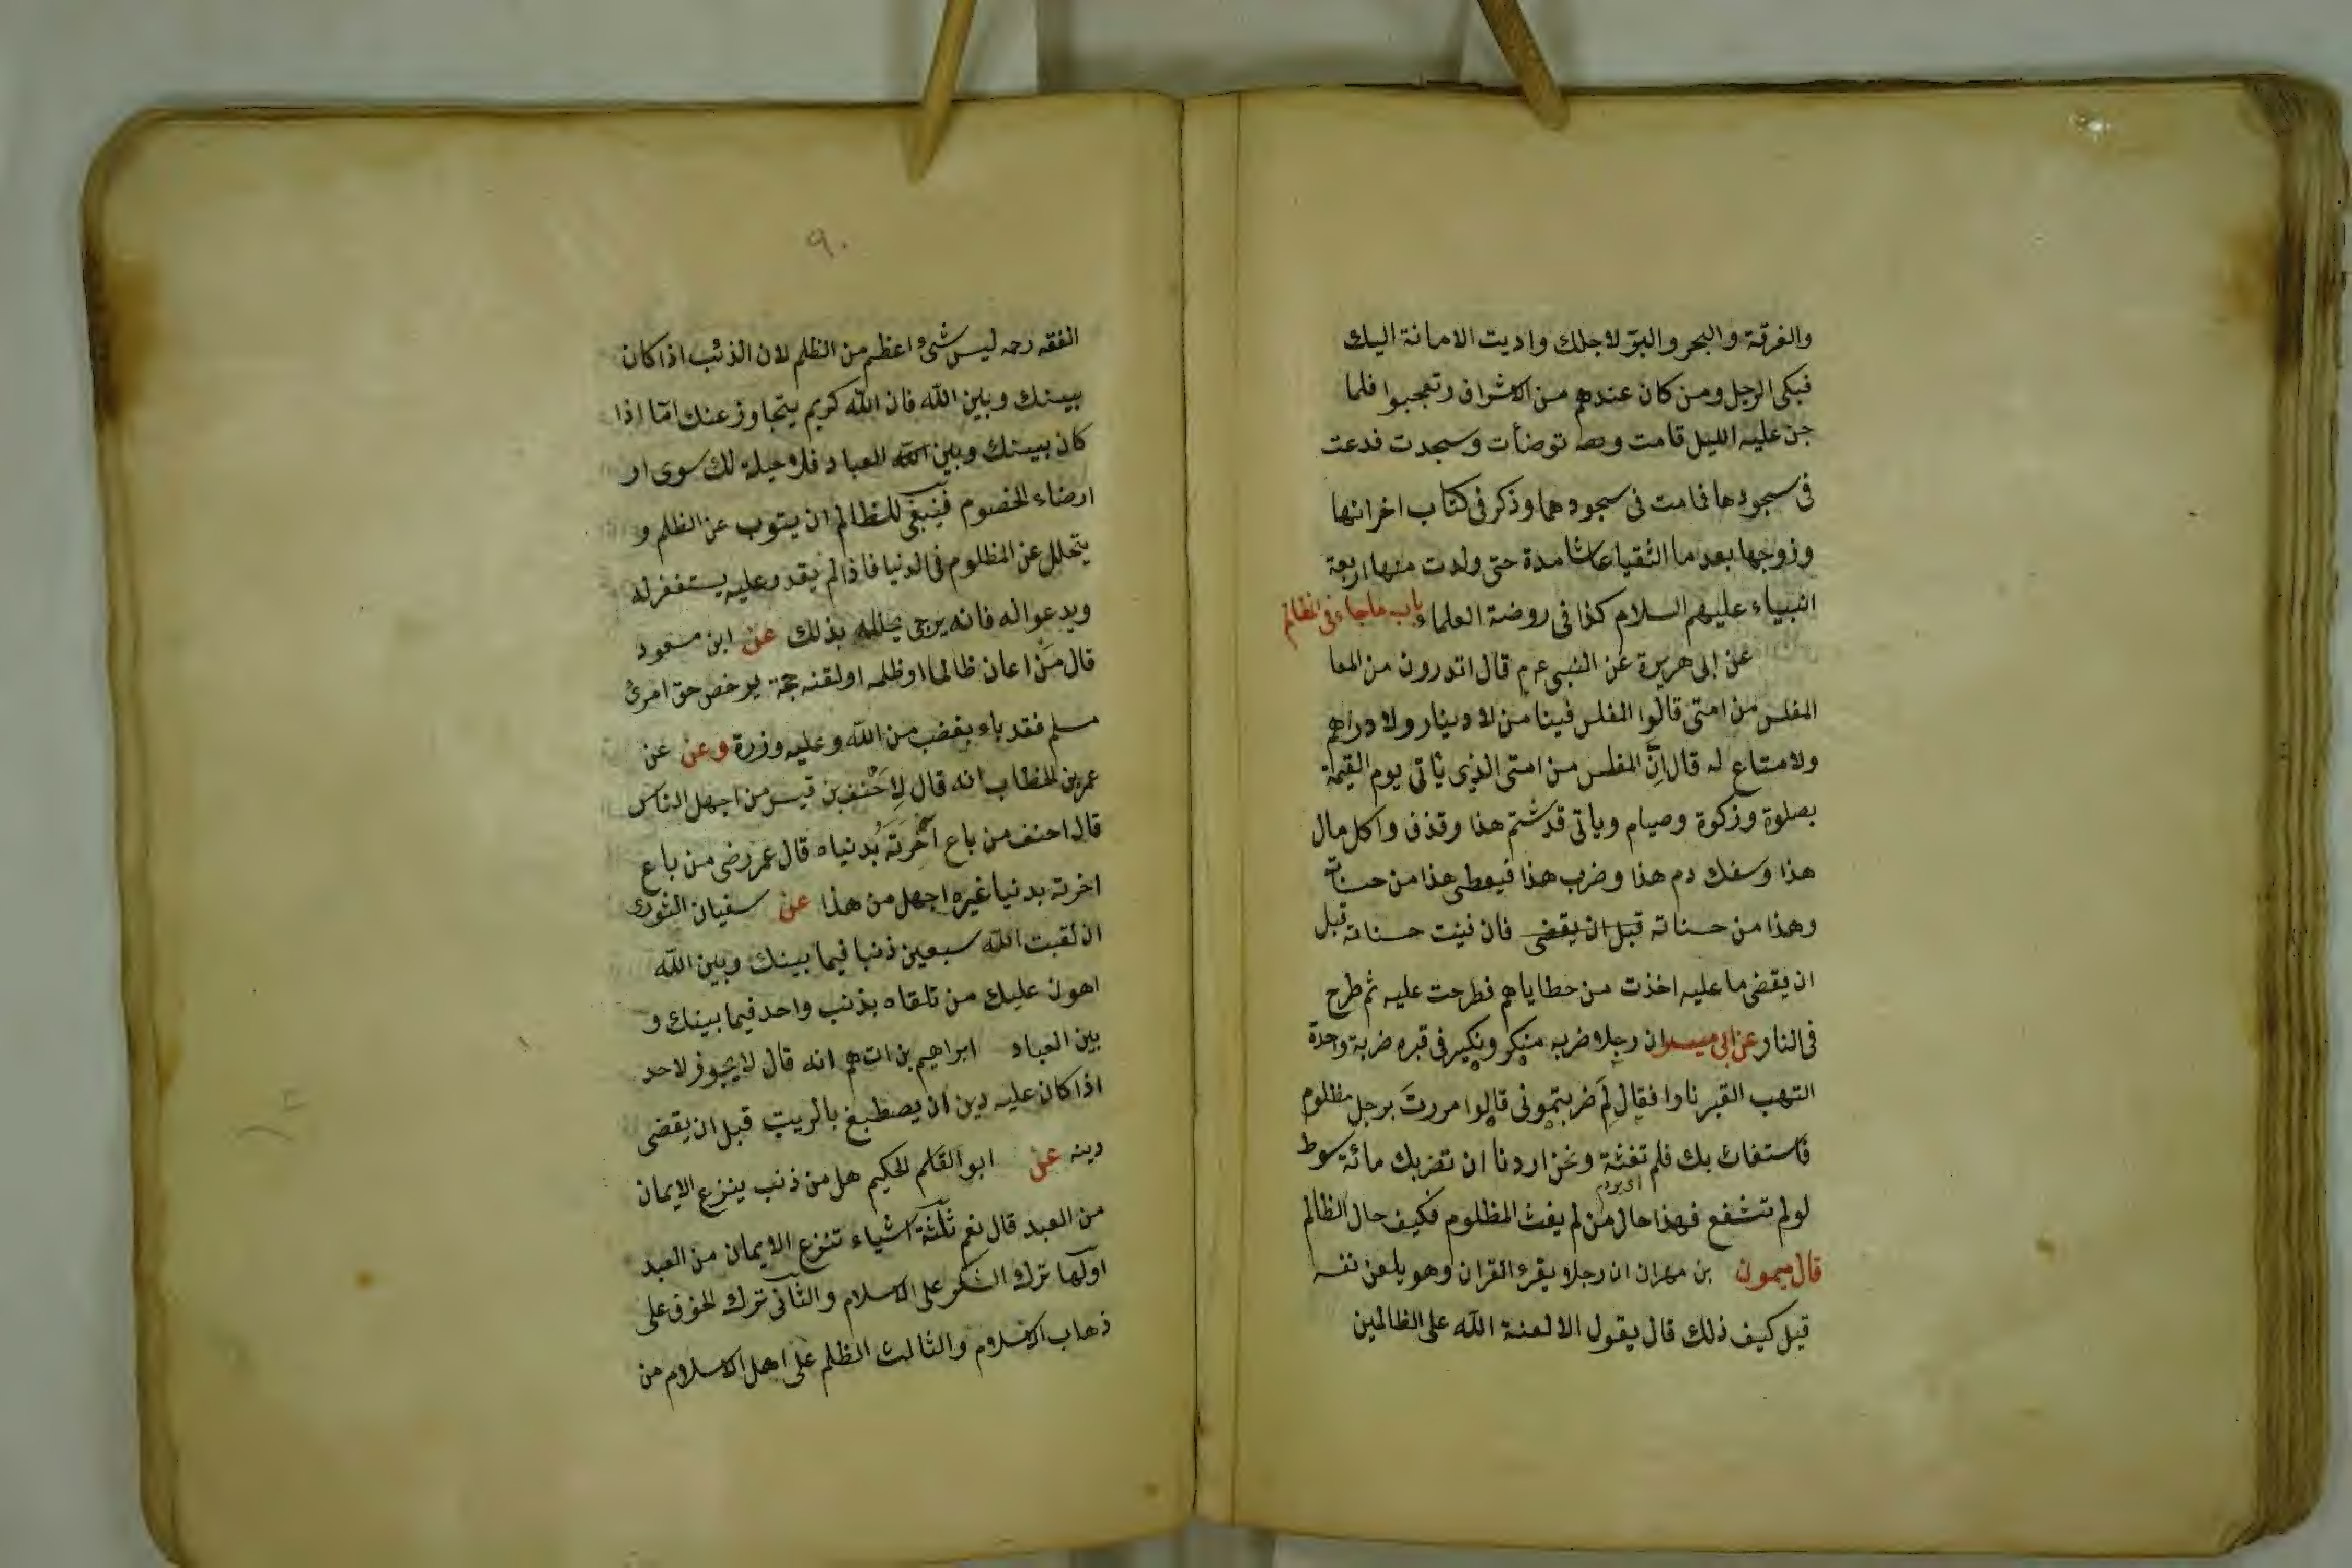 والفرقة والبحر والبر لاجلك واديت الامانة اليك
فبكى الرجل ومن كان عندهم من الاشراف وتعجبوا فلما
جن عليه الليل قامت توضأت وسجدت فدعت
فى سجودها فماتت فى سجودها وذكر فى كتاب اخر انها
وزوجها بعد ما التقيا عاشا مدة حتى ولدت منها اربعة
انبياء عليهم السلام كذا فى روضة العلماء باب ماجاء فى الظالم
عن ابى هريرة عن النبى عم قال اتدرون من المفا
المفلس من امتى قالوا المفلس فينا من لا دينار ولا دراهم
ولا متاع له قال اِنَّ المفلس من امتى الذى يأتى يوم القيمة
بصلوة وزكوة وصيام وياتى قد شتم هذا وقذف واكل مال
هذا وسفك دم هذا وضرب هذا فيعطى هذا من حسناته
وهذا من حسناته قبل ان يقضى فان فنيت حسناته قبل
ان يقضى ما عليه اخذت من خطاياهم فطرحت عليه ثم طرح
فى النار وعن ابى ميسرا ان رجلا ضربه منكر ونكير فى قبره ضربة واحدة
التهب القبر نارا فقال لِمَ ضربتمونى قالوا مررتَ برجل مظلوم
فاستغاث بك فلم تغثة ونحن اردنا ان نضربك مائة سوط
لو لم تشفع فهذا حال من لم يغث المظلوم فكيف حال الظالم
قال ميمون بن مهران ان رجلا يقرء القران وهو يلعن نفسه
قيل كيف ذلك قال يقول الا لعنة الله على الظالمين
٩٠
الفقه رحه ليس شئ اعظم من الظلم لان الذئب اذا كان
بينك وبين الله فان الله كريم يتجاوز عنك امّا اذا
كان بينك وبين الله العباد فلا حيلة لك سوى ار
ارضاء الخصوم فينبغى للظالم ان يتوب عن الظلم و
يتحلل عن المظلوم فى الدنيا فاذا لم يقدر عليه يستغفر له
ويدعوا له فانه يرجى بذلك عن ابن مسعود
قال مَنْ اعان ظالما او ظلمه او لقنه حجة يرخص حق امرئ
مسلم فقد باء بغضب من الله وعليه وزرة وعن عن
عمر بن الخطاب انه قال لِاَحْنف بن قيس من اجهل الناس
قال احنف من باع آخرتَه بدنياه قال عمر رضى من باع
اخرته بدنيا غيره اجهل من هذا عن سفيان الثورى
ان لقيت الله سبعين ذنبا فيما بينك وبين الله
اهون عليك من تلقاه بذنب واحد فيما بينك و
بين العباد ابراهيم بن ادهم انه قال لا يجوز لاحد
اذا كان عليه دين ان يصطبغ بالزيت قبل ان يقضى
دينه عن ابو القاسم الحكيم هل من ذنب ينزع الايمان
من العبد قال نعم ثلثة اشياء تنزع الايمان من العبد
اولها ترك الشكر على الاسلام والثانى ترك الخوف على
ذهاب الاسلام والثالث الظلم على اهل الاسلام من